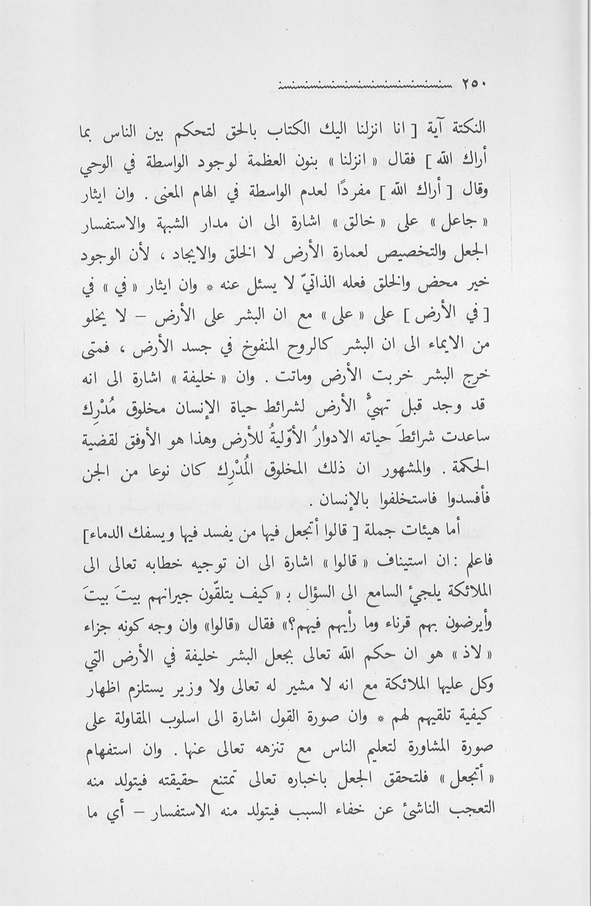 ٢٥٠
النكتة آية [ انا انزلنا اليك الكتاب بالحق لتحكم بين الناس بما
أراك الله ] فقال « انزلنا » بنون العظمة لوجود الواسطة في الوحي
وقال [ أراك الله ] مفردًا لعدم الواسطة في الهام المعنى . وان ايثار
« جاعل » على « خالق » اشارة الى ان مدار الشبهة والاستفسار
الجعل والتخصيص لعمارة الأرض لا الخلق والايجاد ، لأن الوجود
خير محض والخلق فعله الذاتيّ لا يسئل عنه * وان ايثار « في » في
[ في الأرض ] على « على » مع ان البشر على الأرض – لا يخلو
من الايماء الى ان البشر كالروح المنفوخ في جسد الأرض ، فمتى
خرج البشر خربت الأرض وماتت . وان « خليفة » اشارة الى انه
قد وجد قبل تهيُّ الأرض لشرائط حياة الإنسان مخلوق مُدْرِك
ساعدت شرائطَ حياته الادوارُ الأوّليةُ للأرض وهذا هو الأوفق لقضية
الحكمة . والمشهور ان ذلك المخلوق المُدْرِك كان نوعا من الجن
فأفسدوا فاستخلفوا بالإنسان .
أما هيئات جملة [ قالوا أتجعل فيها من يفسد فيها ويسفك الدماء]
فاعلم : ان استيناف « قالوا » اشارة الى ان توجيه خطابه تعالى الى
الملائكة يلجئ السامع الى السؤال بـ « كيف يتلقّون جيرانهم بيتَ بيتَ
وأيرضون بهم قرناء وما رأيهم فيهم؟» فقال «قالوا» وان وجه كونه جزاء
« لاذ » هو ان حكم الله تعالى بجعل البشر خليفة في الأرض التي
وكل عليها الملائكة مع انه لا مشير له تعالى ولا وزير يستلزم اظهار
كيفية تلقيهم لهم * وان صورة القول اشارة الى اسلوب المقاولة على
صورة المشاورة لتعليم الناس مع تنزهه تعالى عنها . وان استفهام
« أتجعل » فلتحقق الجعل باخباره تعالى تمتنع حقيقته فيتولد منه
التعجب الناشئ عن خفاء السبب فيتولد منه الاستفسار – أي ما